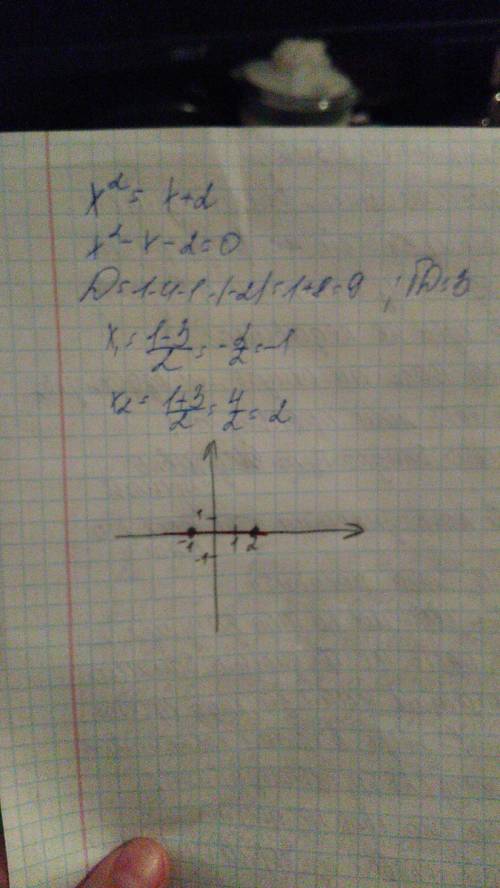 x² = x+2
x² - x - 2 = 0
D = 1 - 4·1·(-2) = 1+8 = 9 ; √D = 3
x₁ = (1-3)/2 = -2/2 = -1
x₂ = (1+3)/2 = 4/2 = 2
1
-1 1 2
-1